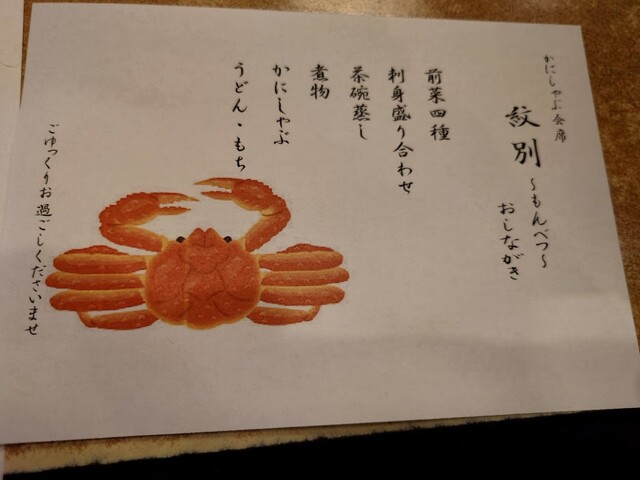 かにしゃぶ会席
紋別 ~もんべつ~
おしながき
前菜四種
刺身盛り合わせ
茶碗蒸し
煮物
かにしゃぶ
うどん・もち
ごゆっくりお過ごしくださいませ